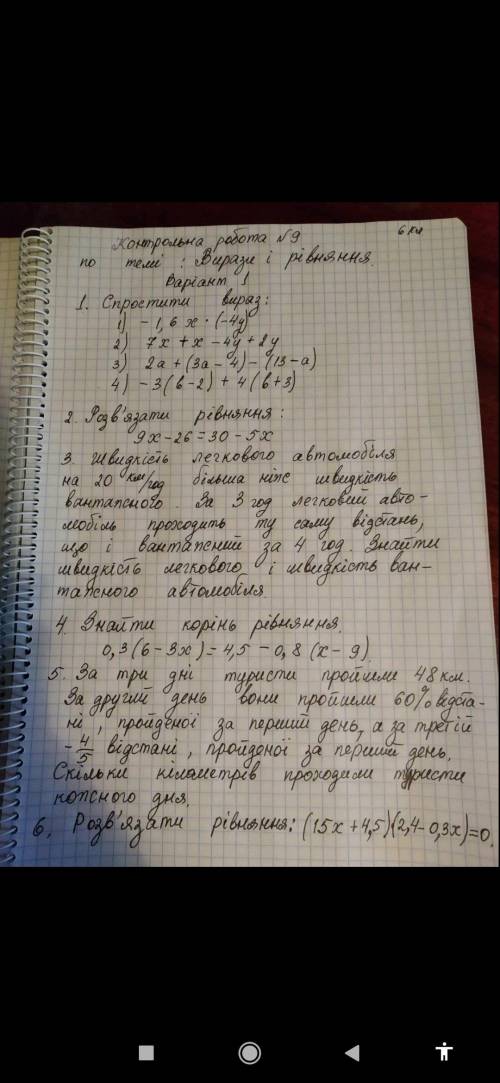 Контрольна робота №9
6 кл
по темі : Вирази і рівняння.
Варіант 1
1. Спростити вираз:
1) - 1,6 x · (-4y)
2) 7x + x - 4y + 2y
3) 2a + (3a - 4) - (13 - a)
4) - 3(b - 2) + 4(b + 3)
2. Розв'язати рівняння:
9x - 26 = 30 - 5x
3. Швидкість легкового автомобіля
на 20 км/год більша ніж швидкість
вантажного. За 3 год легковий авто-
мобіль проходить ту саму відстань,
що і вантажний за 4 год. Знайти
швидкість легкового і швидкість ван-
тажного автомобіля.
4. Знайти корінь рівняння.
0,3(6 - 3x) = 4,5 - 0,8 (x - 9)
5. За три дні туристи пройшли 48 км.
За другий день вони пройшли 60% відста-
ні, пройденої за перший день, а за третій
- 4/5 відстані, пройденої за перший день.
Скільки кілометрів проходили туристи
кожного дня.
6. Розв'язати рівняння: (15x + 4,5)(2,4 - 0,3x) = 0.